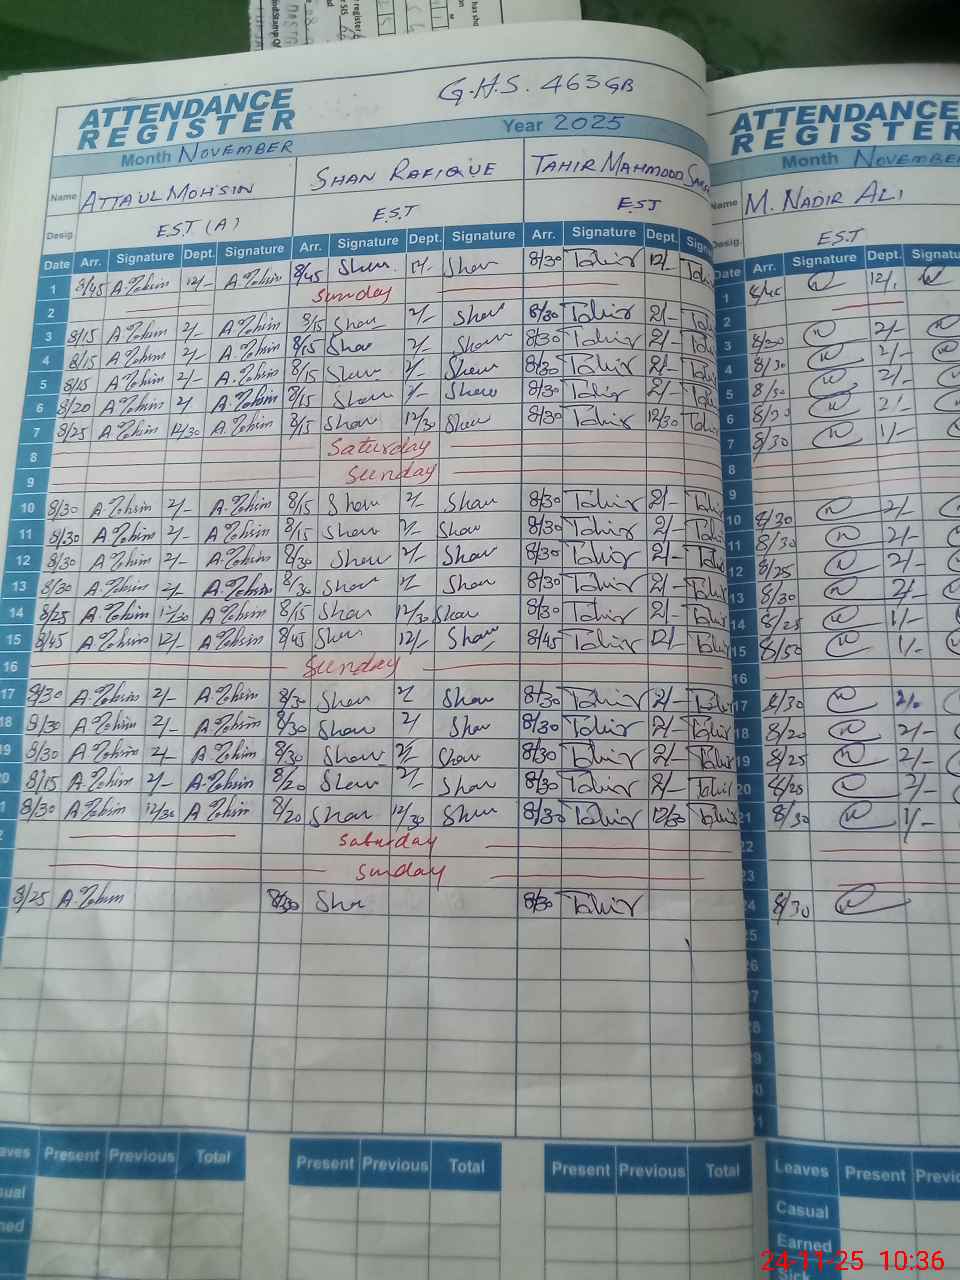 G.H.S. 463 GB
ATTENDANCE REGISTER
Year 2025
Month NOVEMBER
Name ATTAUL MOHSIN SHAN RAFIQUE TAHIR MAHMOOD
Desig. EST (A) EST EST
Date Arr. Signature Dept. Signature Arr. Signature Dept. Signature Arr. Signature Dept. Sign
1 8/45 A.Mohsin 12/- A.Mohsin 8/45 Shan 12/- Shan 8/30 Tahir 12/- Tahir
2 Sunday
3 8/15 A.Mohsin 2/- A.Mohsin 8/15 Shan 2/- Shan 8/30 Tahir 2/- Tahir
4 8/15 A.Mohsin 2/- A.Mohsin 8/15 Shan 2/- Shan 8/30 Tahir 2/- Tahir
5 8/15 A.Mohsin 2/- A.Mohsin 8/15 Shan 2/- Shan 8/30 Tahir 2/- Tahir
6 8/20 A.Mohsin 2/ A.Mohsin 8/15 Shan 2/- Shan 8/30 Tahir 2/- Tahir
7 8/25 A.Mohsin 12/30 A.Mohsin 8/15 Shan 12/30 Shan 8/30 Tahir 12/30 Tahir
8 Saturday
9 Sunday
10 8/30 A.Mohsin 2/- A.Mohsin 8/15 Shan 2/- Shan 8/30 Tahir 2/- Tahir
11 8/30 A.Mohsin 2/- A.Mohsin 8/15 Shan 2/- Shan 8/30 Tahir 2/- Tahir
12 8/30 A.Mohsin 2/- A.Mohsin 8/30 Shan 2/- Shan 8/30 Tahir 2/- Tahir
13 8/30 A.Mohsin 2/- A.Mohsin 8/30 Shan 2/ Shan 8/30 Tahir 2/- Tahir
14 8/25 A.Mohsin 12/30 A.Mohsin 8/15 Shan 12/30 Shan 8/30 Tahir 2/- Tahir
15 8/45 A.Mohsin 12/- A.Mohsin 8/45 Shan 12/- Shan 8/45 Tahir 12/- Tahir
16 Sunday
17 8/30 A.Mohsin 2/- A.Mohsin 8/30 Shan 2/ Shan 8/30 Tahir 2/- Tahir
18 8/30 A.Mohsin 2/- A.Mohsin 8/30 Shan 2/ Shan 8/30 Tahir 2/- Tahir
19 8/30 A.Mohsin 2/- A.Mohsin 8/30 Shan 2/- Shan 8/30 Tahir 2/- Tahir
0 8/15 A.Mohsin 2/- A.Mohsin 8/20 Shan 2/- Shan 8/30 Tahir 2/- Tahir
1 8/30 A.Mohsin 12/30 A.Mohsin 8/20 Shan 12/30 Shan 8/30 Tahir 12/30 Tahir
2 Saturday
Sunday
8/25 A.Mohsin 8/30 Shan 8/30 Tahir
aves Present Previous Total Present Previous Total Present Previous Total
sual
ned
ATTENDANCE REGISTER
Month NOVEMBER
Name M. NADIR ALI
Desig. EST
Date Arr. Signature Dept. Signatu
1 12/.
2
3 8/30 2/-
4 8/30 2/-
5 8/30 2/-
6 8/30 2/-
7 8/30 1/-
8
9
10 8/30 2/-
11 8/30 2/-
12 8/25 2/-
13 8/30 2/-
14 8/25 1/-
15 8/50 1/-
16
17 8/30 2/-
18 8/20 2/-
19 8/25 2/-
20 8/25 2/-
21 8/30 1/-
22
23
24 8/30
25
26
27
28
29
30
31
Leaves Present Previo
Casual
Earned
Sick
24-11-25 10:36